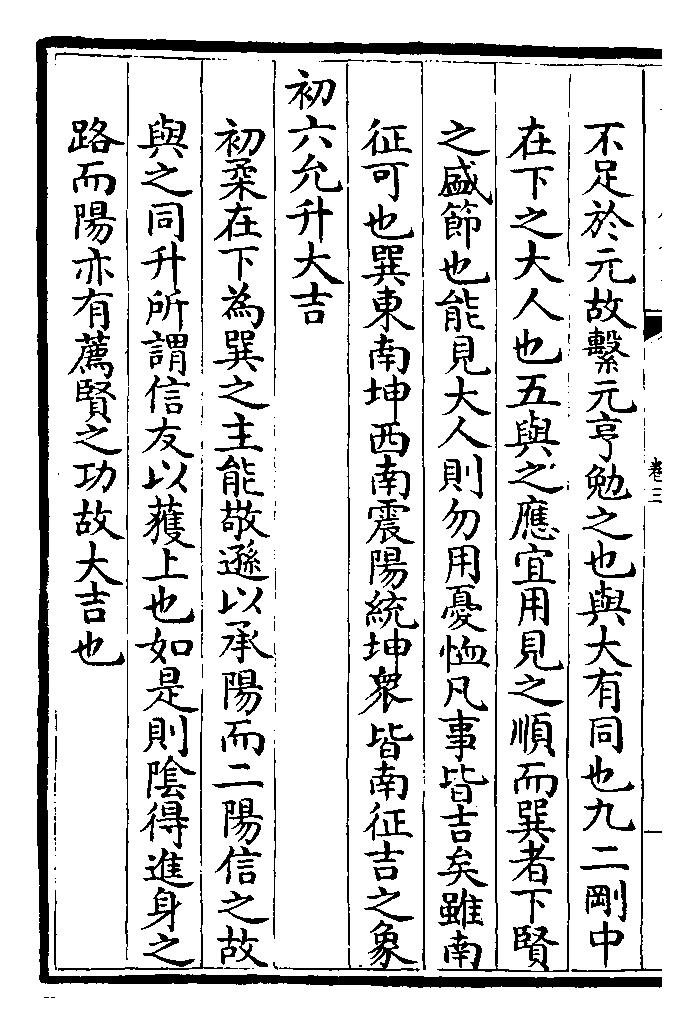 不足於元故繫元亨勉之也與大有同也九二剛中
在下之大人也五與之應宜用見之順而巽者下賢
之盛節也能見大人則勿用憂恤凡事皆吉矣雖南
征可也巽東南坤西南震陽統坤衆皆南征吉之象
初六允升大吉
初柔在下為巽之主能敬遜以承陽而二陽信之故
與之同升所謂信友以獲上也如是則陰得進身之
路而陽亦有薦賢之功故大吉也
卷三